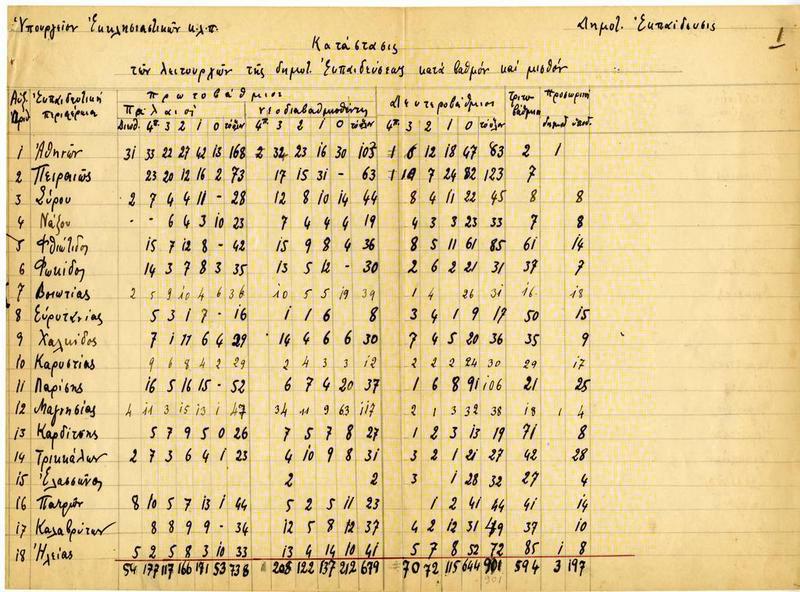 Ὑπουργεῖον Ἐκκλησιαστικῶν κ.λ.π. Δημοτ. Ἐκπαίδευσις 1
Κατάστασις
τῶν λειτουργῶν τῆς δημοτ. Ἐκπαιδεύσεως κατὰ βαθμὸν καὶ μισθόν
Αὔξ. Ἀριθ. Ἐκπαιδευτικὴ περιφέρεια Πρωτοβάθμιοι Δευτεροβάθμιοι Τριτοβάθμιοι προσωρινοὶ
Παλαιοὶ νεοδιαβαθμισθέντες
Διευθ. 4 3 2 1 0 4 3 2 1 0 4 3 2 1 0 δημοδ. ὑποδ.
1 Ἀθηνῶν 31 33 22 27 42 13 168 2 32 23 16 30 103 1 6 12 18 47 83 2 1
2 Πειραιῶς 23 20 12 16 2 73 17 15 31 - 63 1 10 7 24 82 123 7
3 Σύρου 2 7 4 4 11 - 28 12 8 10 14 44 8 4 11 22 45 8 8
4 Νάξου - - 6 4 3 10 23 7 4 4 4 19 4 3 3 23 33 7 8
5 Φθιώτιδος 15 7 12 8 - 42 15 9 8 4 36 8 5 11 61 85 61 14
6 Φωκίδος 14 3 7 8 3 35 13 5 12 - 30 2 6 2 21 31 37 7
7 Βοιωτίας 2 5 9 10 4 6 36 10 5 5 19 39 1 4 26 31 16 18
8 Εὐρυτανίας 5 3 1 7 - 16 1 1 6 8 3 4 1 9 17 50 15
9 Χαλκίδος 7 1 11 6 4 29 14 4 6 6 30 7 4 5 20 36 35 9
10 Καρυστίας 9 6 8 4 2 29 2 4 3 3 12 2 2 2 24 30 29 17
11 Λαρίσης 16 5 16 15 - 52 6 7 4 20 37 1 6 8 91 106 21 25
12 Μαγνησίας 4 11 3 15 13 1 47 34 11 9 63 117 2 1 3 32 38 18 1 4
13 Καρδίτσης 5 7 9 5 0 26 7 5 7 8 27 1 2 3 13 19 71 8
14 Τρικκάλων 2 7 3 6 4 1 23 4 10 9 8 31 3 2 1 21 27 42 28
15 Ἐλασσῶνος 2 2 3 1 28 32 27 4
16 Πατρῶν 8 10 5 7 13 1 44 5 2 5 11 23 1 2 41 44 41 14
17 Καλαβρύτων 8 8 9 9 - 34 12 5 8 12 37 4 2 12 31 49 37 10
18 Ἠλείας 5 2 5 8 3 10 33 13 4 14 10 41 5 7 8 52 72 85 1 8
54 177 117 166 171 53 738 208 122 137 212 679 70 72 115 644 901 594 3 197
901